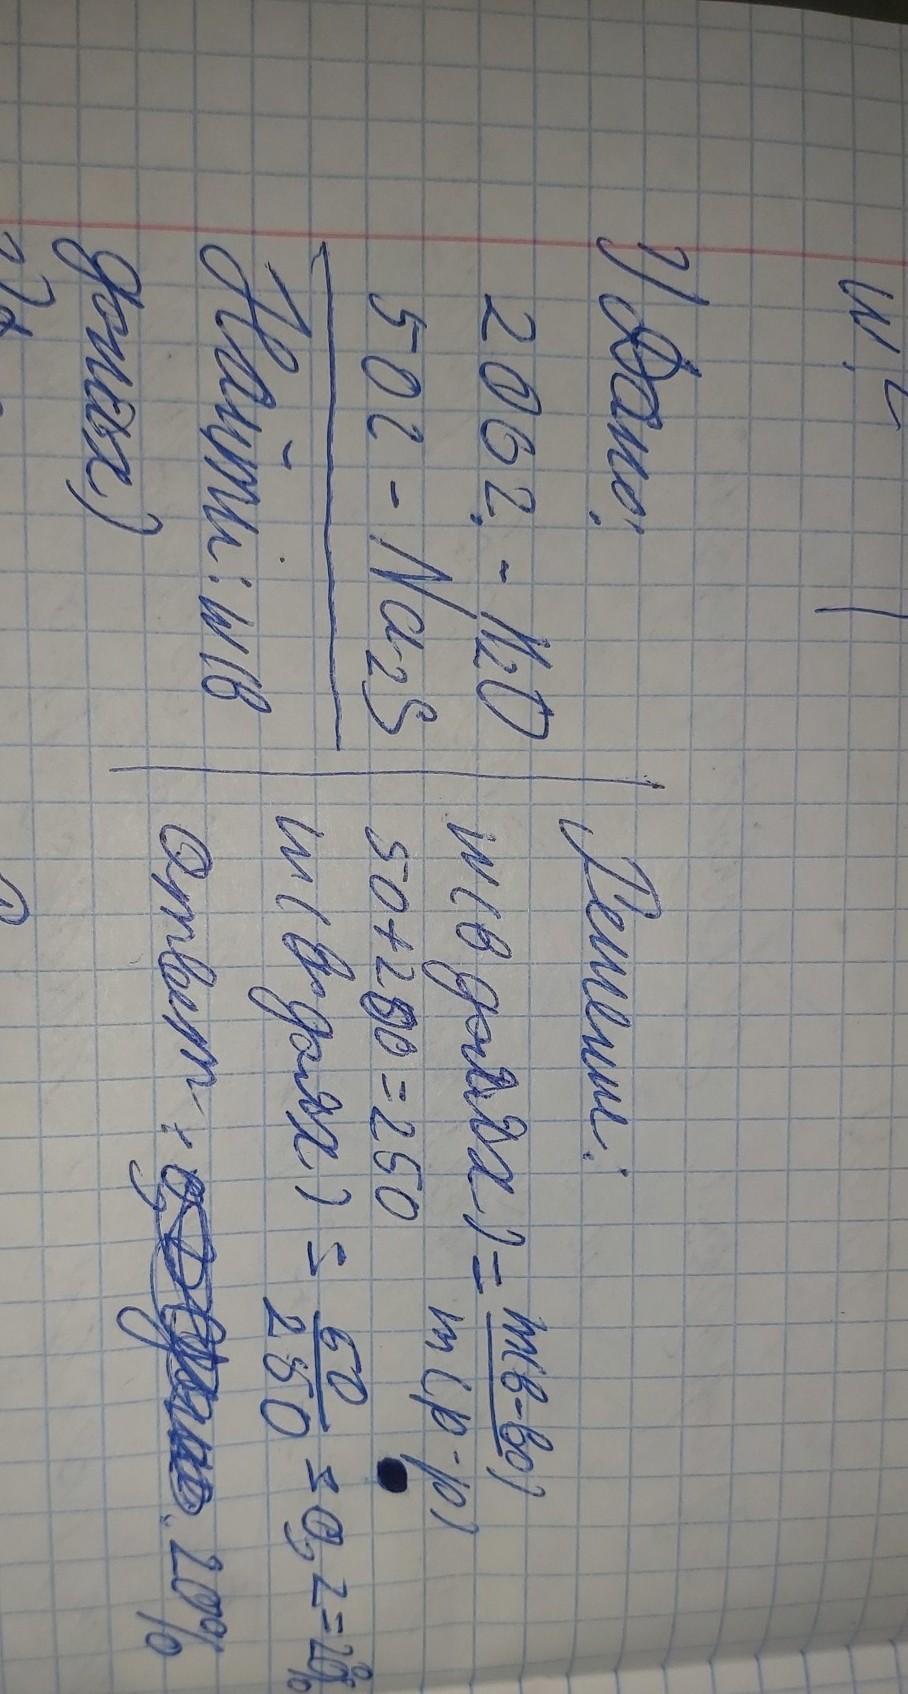 1) Дано:
206г. - H2O
50г - Na2S
Найти: w(в
долях)
Решение:
w(в долях) = m(в-во)
m(р-р)
50+200=250
w(в долях) = 50/250 = 0,2=20%
Ответ: 20%